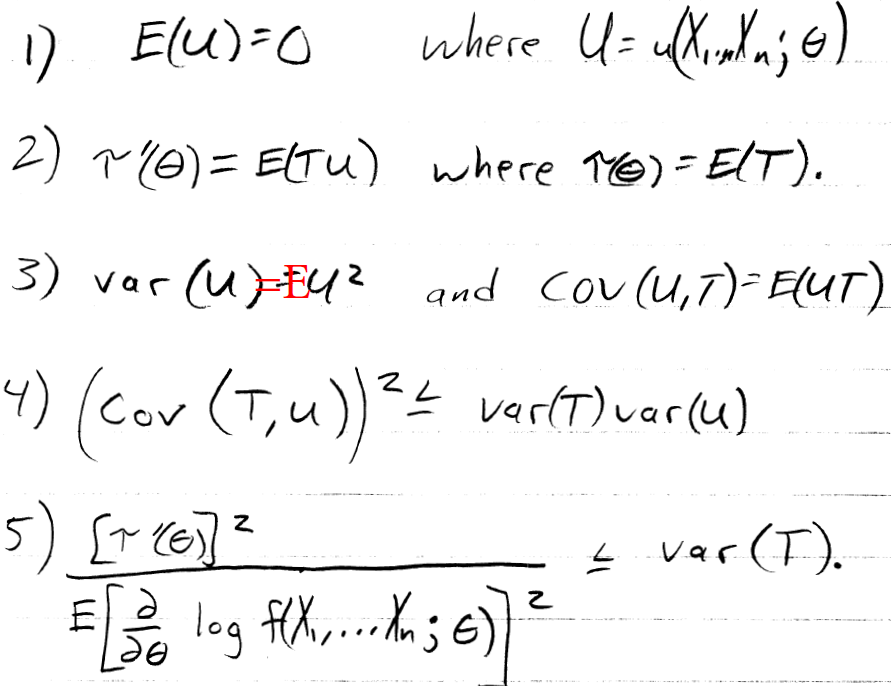 1) E(U)=0 where U=u(X₁,...,Xₙ; θ)
2) τ'(θ)=E(TU) where τ(θ)=E(T).
3) var(U)=EU² and Cov(U,T)=E(UT)
4) (Cov(T,U))² ≤ var(T)var(U)
5) [τ'(θ)]² / E[∂/∂θ log f(X₁,...Xₙ; θ)]² ≤ var(T).